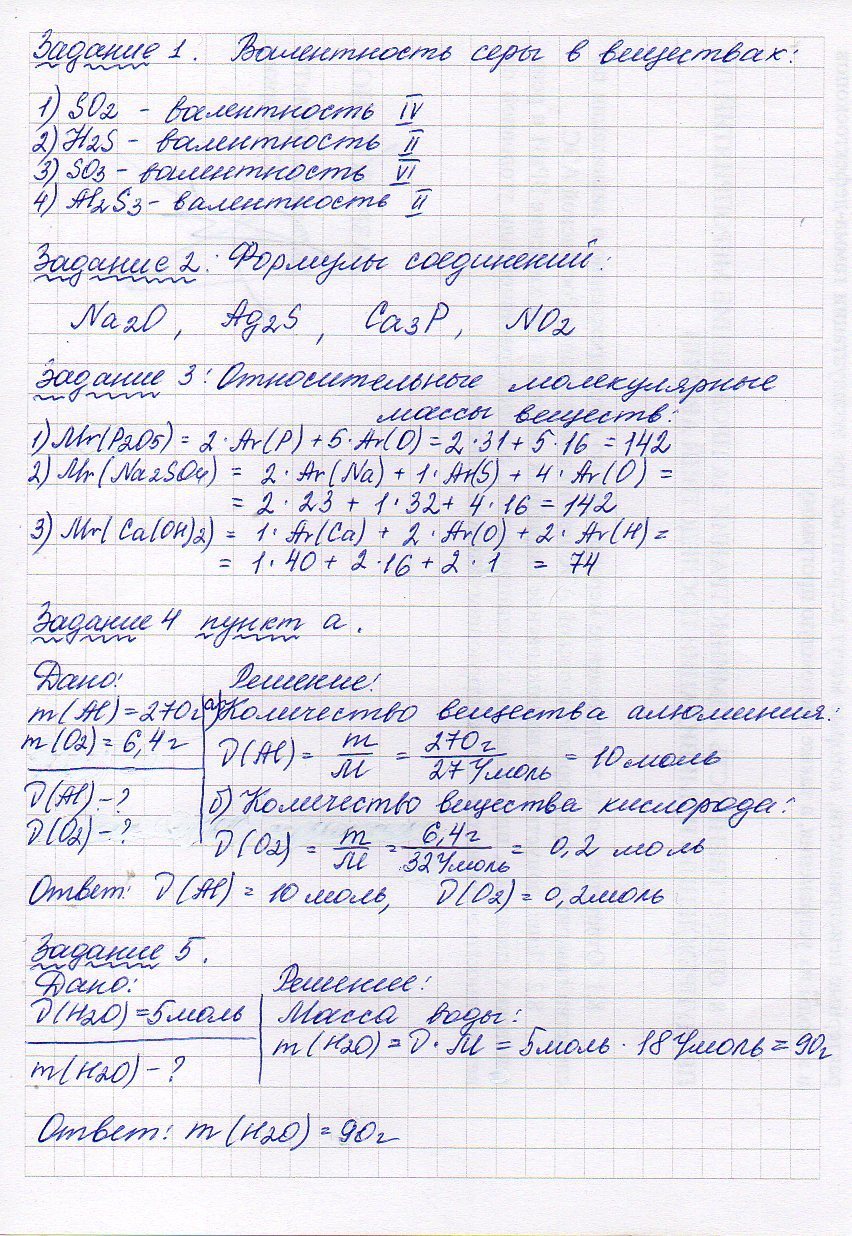 Задание 1. Валентность серы в веществах:
1) SO2 - валентность IV
2) H2S - валентность II
3) SO3 - валентность VI
4) Al2S3 - валентность II
Задание 2: Формулы соединений:
Na2O, Ag2S, Ca3P, NO2
Задание 3: Относительные молекулярные
массы веществ:
1) Mr(P2O5) = 2·Ar(P) + 5·Ar(O) = 2·31 + 5·16 = 142
2) Mr(Na2SO4) = 2·Ar(Na) + 1·Ar(S) + 4·Ar(O) =
= 2·23 + 1·32 + 4·16 = 142
3) Mr(Ca(OH)2) = 1·Ar(Ca) + 2·Ar(O) + 2·Ar(H) =
= 1·40 + 2·16 + 2·1 = 74
Задание 4 пункт а.
Дано: Решение:
m(Al) = 270г а) Количество вещества алюминия:
m(O2) = 6,4г ν(Al) = m/M = 270г/27г/моль = 10 моль
ν(Al) - ? б) Количество вещества кислорода:
ν(O2) - ? ν(O2) = m/M = 6,4г/32г/моль = 0,2 моль
Ответ: ν(Al) = 10 моль, ν(O2) = 0,2моль
Задание 5.
Дано: Решение:
ν(H2O) = 5моль Масса воды:
m(H2O) = ν·M = 5моль · 18г/моль = 90г
m(H2O) - ?
Ответ: m(H2O) = 90г